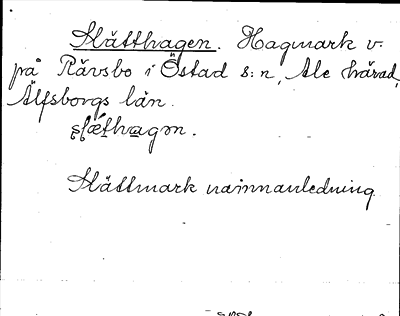 Slätthagen. Hagmark v.
på Rävsbo i Östad s:n, Ale härad,
Älfsborgs län.
Slättmark namnanledning